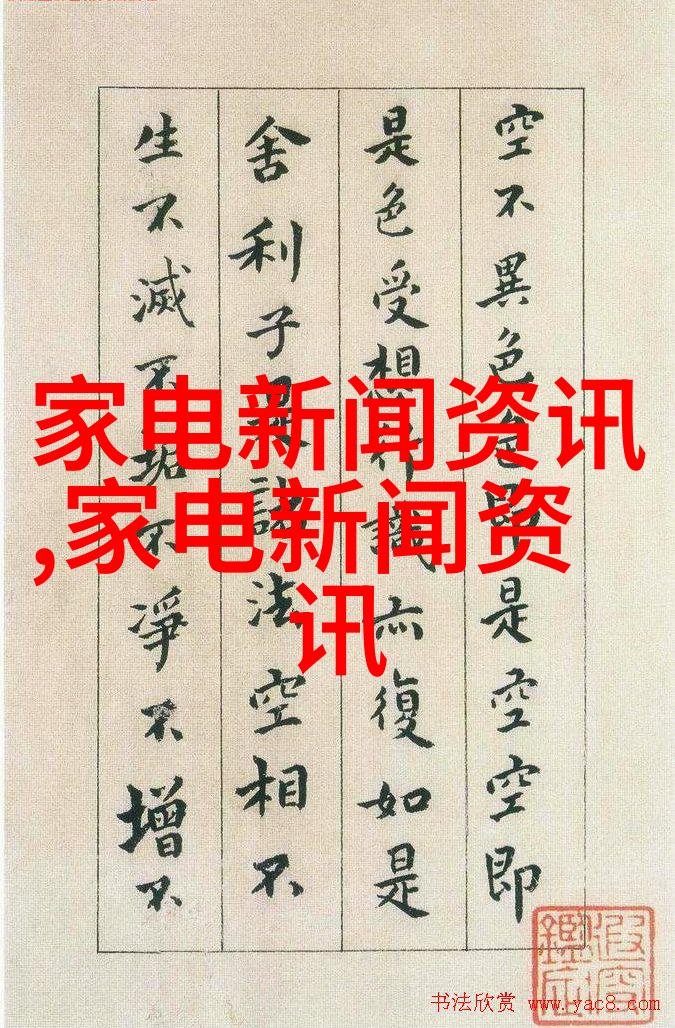 空不異色色即是空空即
是色受想行識亦復如是
舍利子是諸法空相不
生不滅不垢不淨不增不
家电新闻资讯
,家电新闻资
讯
书法欣赏 www.yac8.com